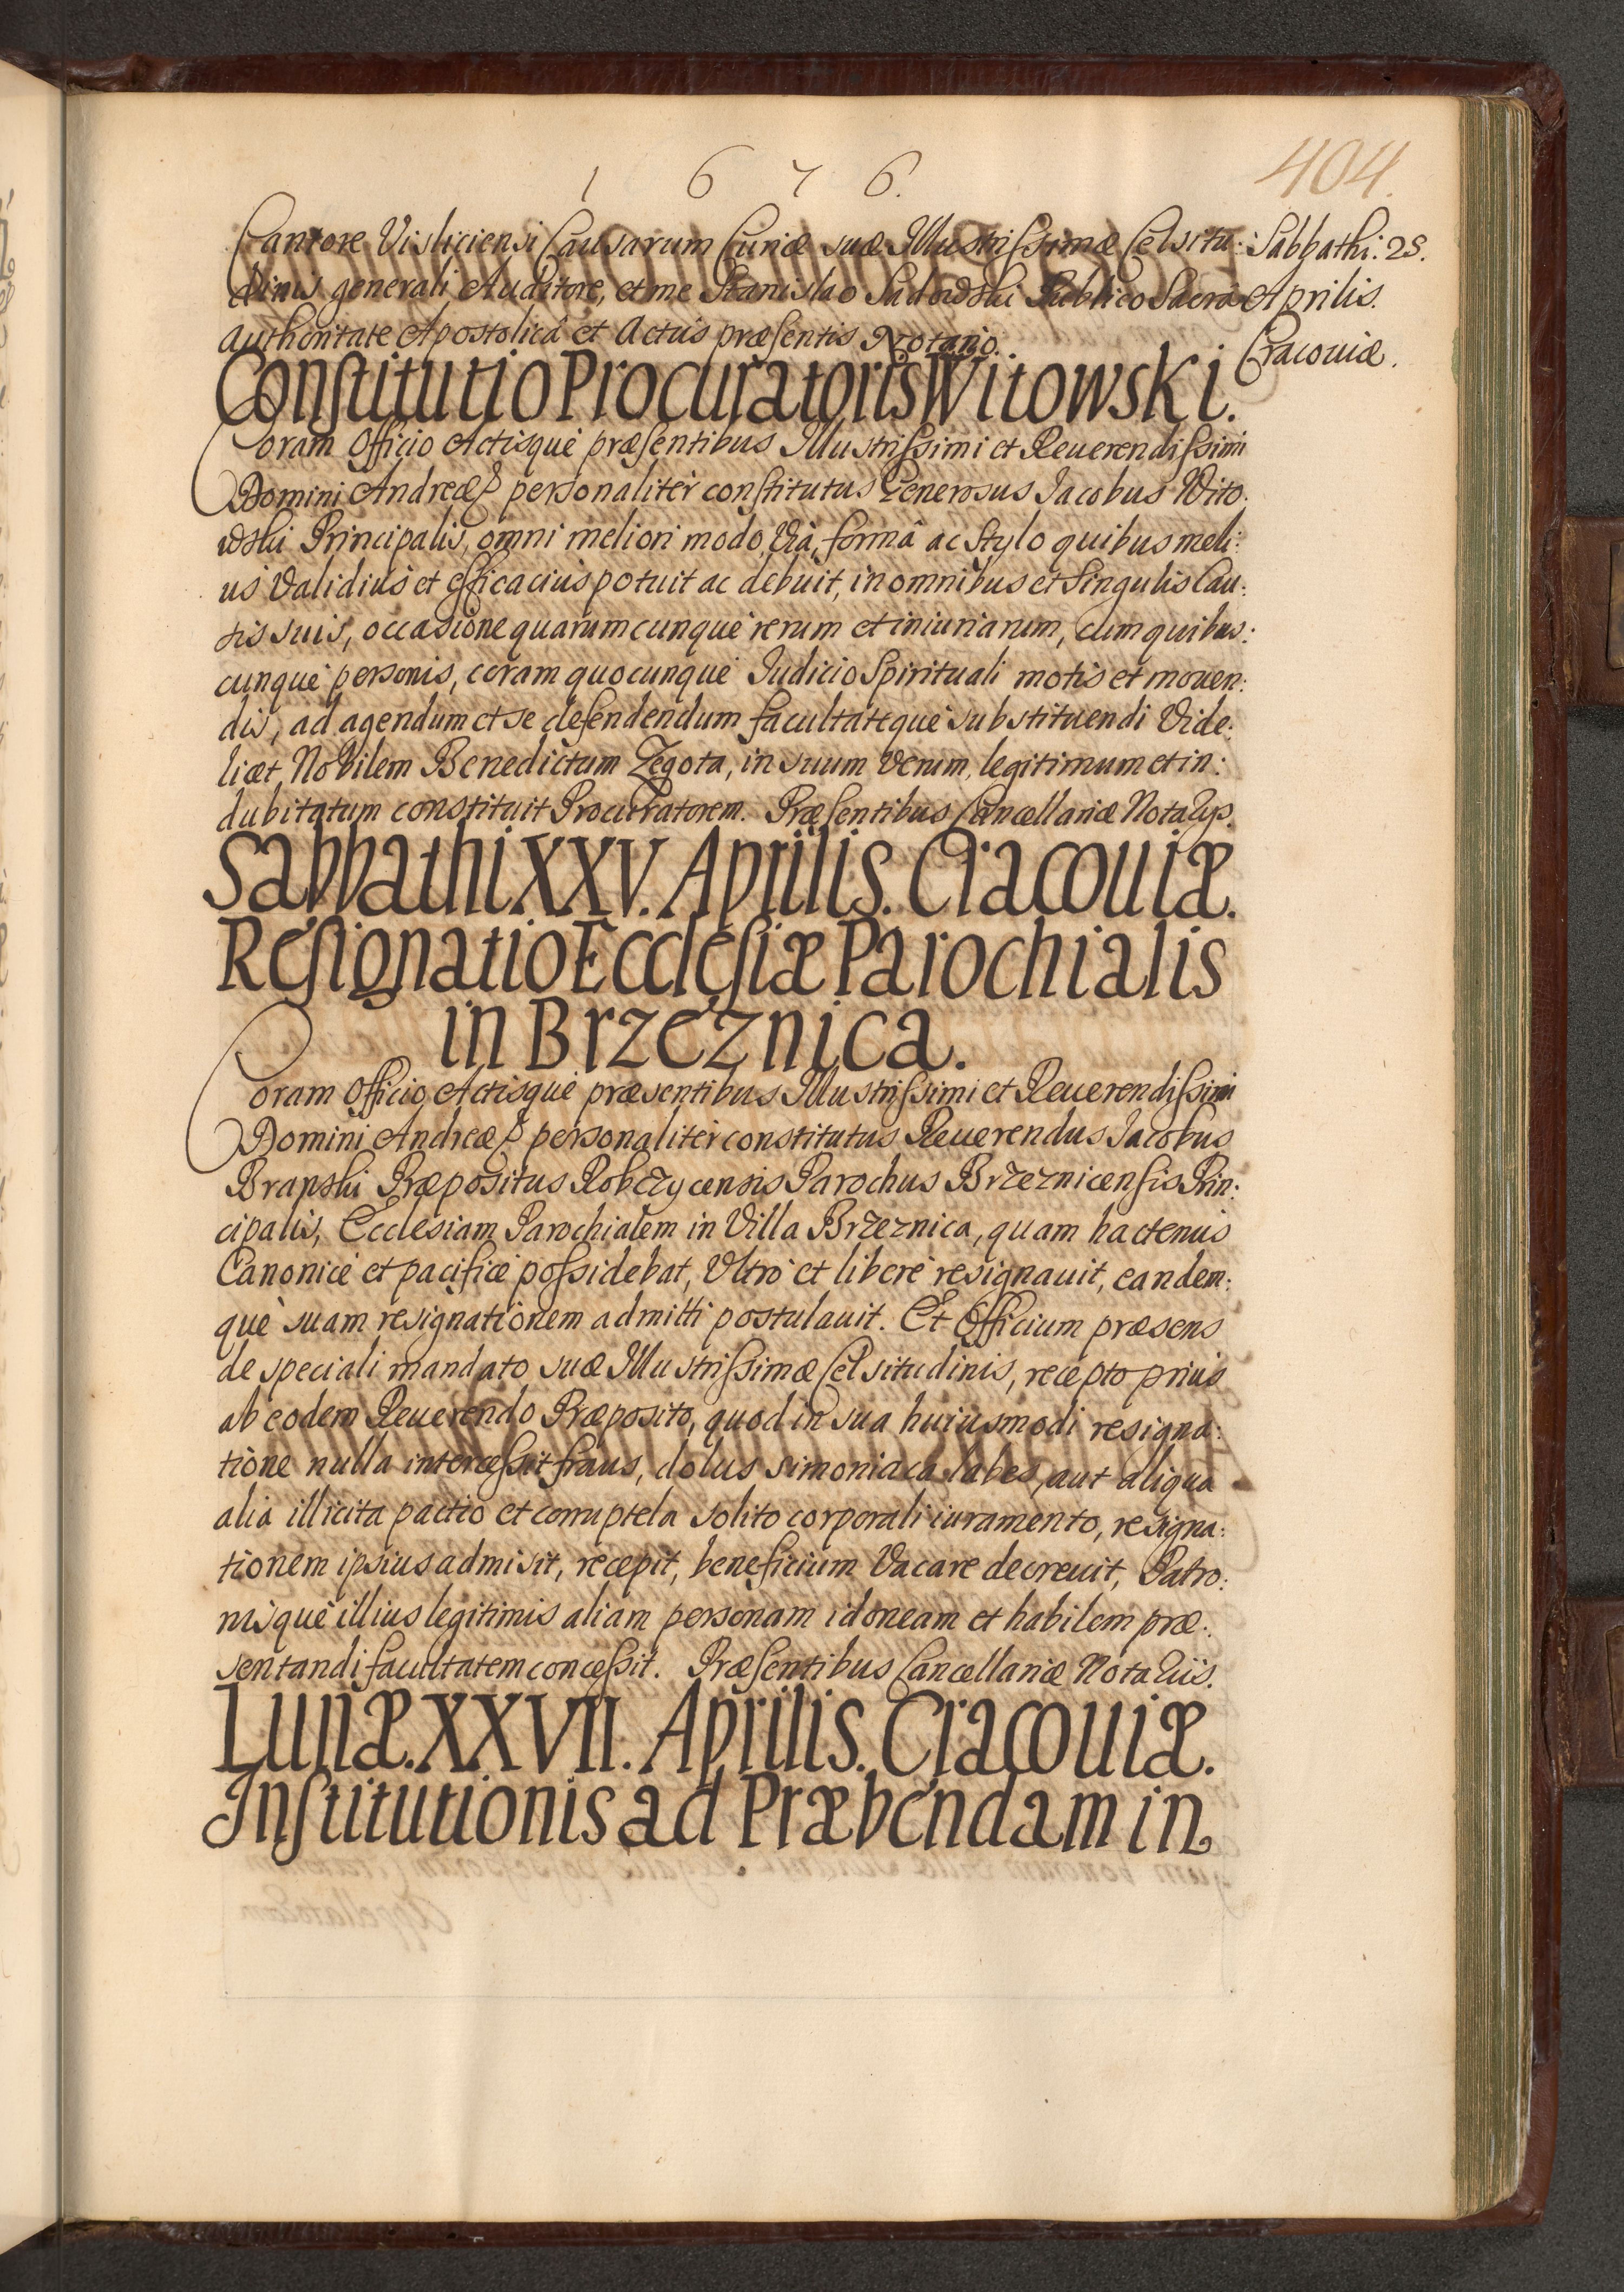 1676.
404.
Cantore Visliciensi Causarum Curiæ suæ Illustrissimæ Celsitu:
dinis generali Auditore, et me Stanislao Sadowski Publico Sacrâ
authoritate Apostolicâ et Actus præsentis Notario.
Sabbathi: 25.
Aprilis.
Cracouiæ.
Constitutio Procuratoris Witowski.
Coram Officio Actisque præsentibus Illustrissimi et Reuerendissimi
Domini Andreæ personaliter constitutus Generosus Jacobus Wito:
wski Principalis, omni meliori modo, Viâ, formâ ac Stylo quibus meli:
us Validius et efficacius potuit ac debuit, in omnibus et Singulis Cau:
sis suis, occasione quarumcunque rerum et iniuriarum, cum quibus:
cunque personis, coram quocunque Judicio Spirituali motis et mouen:
dis, ad agendum et se defendendum facultateque substituendi Vide:
licet, Nobilem Benedictum Zegota, in suum Verum, legitimum et in:
dubitatum constituit Procuratorem. Præsentibus Cancellariæ Notarÿs.
Sabbathi XXV. Aprilis. Cracouiæ.
Resignatio Ecclesiæ Parochialis
in Brzeznica.
Coram Officio Actisque præsentibus Illustrissimi et Reuerendissimi
Domini Andreæ personaliter constitutus Reuerendus Jacobus
Branski Præpositus Robczycensis Parochus Brzeznicensis Prin:
cipalis, Ecclesiam Parochialem in Villa Brzeznica, quam hactenus
Canonicè et pacificè possidebat, Vltrò et liberè resignauit, eandem:
què suam resignationem admitti postulauit. Et Officium præsens
de speciali mandato suæ Illustrissimæ Celsitudinis, recepto prius
ab eodem Reuerendo Præposito, quod in sua huiusmodi resigna:
tione nulla intercessit fraus, dolus simoniaca labes, aut aliqua
alia illicita pactio et corruptela solito corporali iuramento, resigna:
tionem ipsius admisit, recepit, beneficium Vacare decreuit, Patro:
nisque illius legitimis aliam personam idoneam et habilem præ:
sentandi facultatem concessit. Præsentibus Cancellariæ Notariis.
Lunæ. XXVII. Aprilis. Cracouiæ.
Institutionis ad Præbendam in